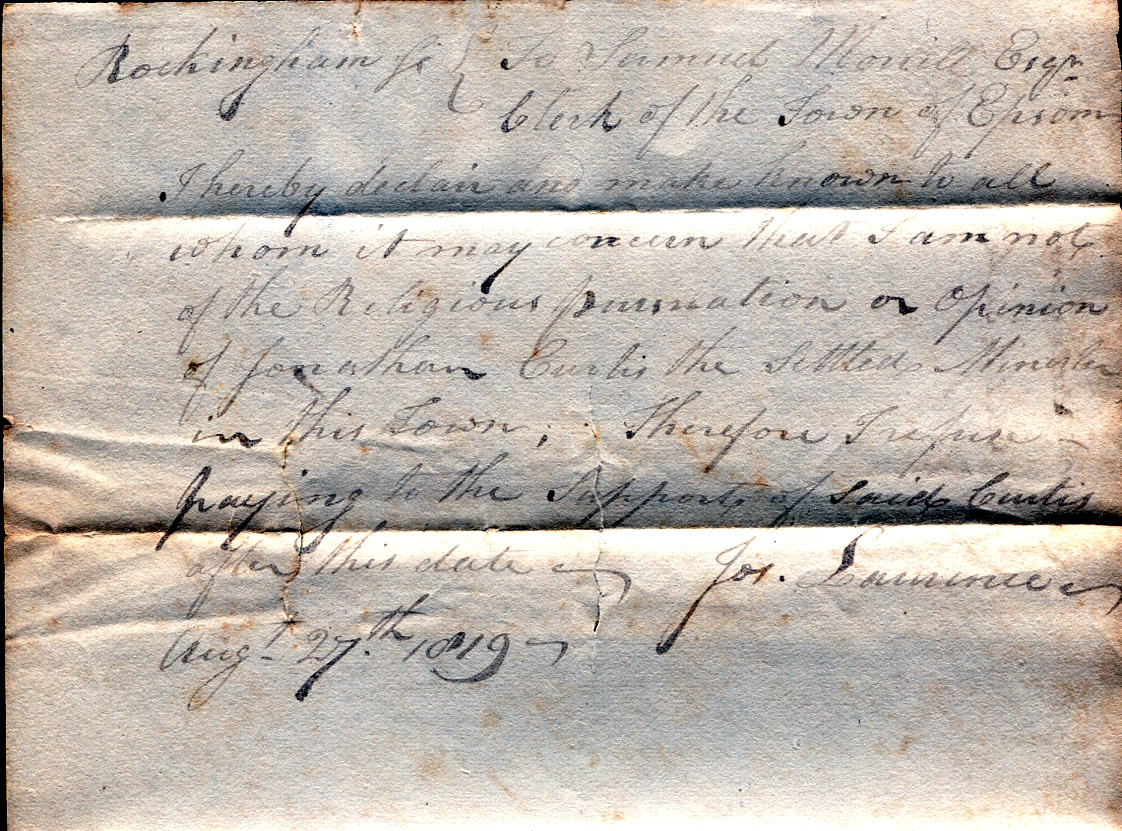 Rockingham Ss } To Samuel Morrill Esqr
Clerk of the Town of Epsom
I hereby declair and make known to all
whom it may concern that I am not
of the Religious persuation or Opinion
of Jonathan Curtis the Settled Minister
in this Town ; Therefore I refuse -
paying to the Support of said Curtis
after this date Jos. Lawrence
Augt 27.th 1819